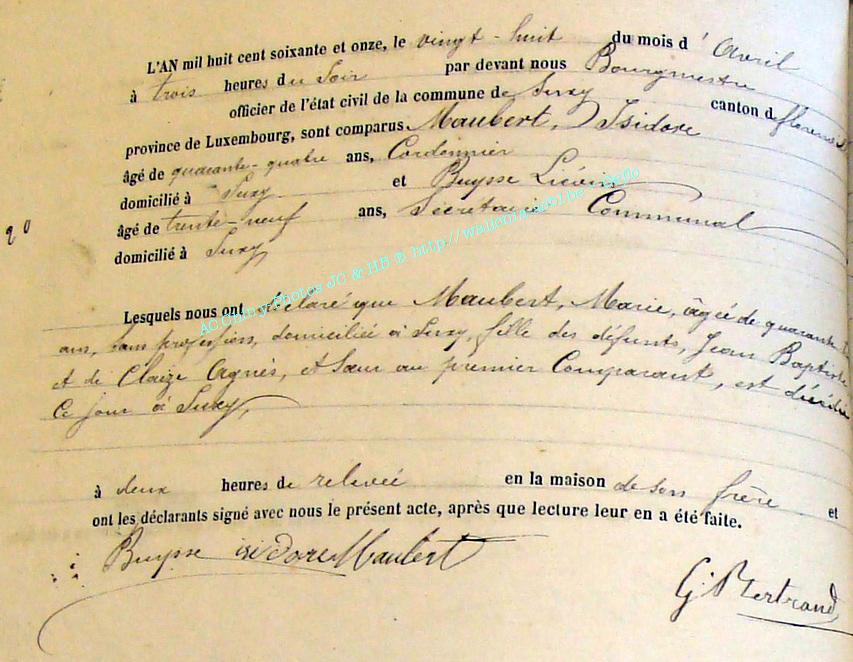 L'AN mil huit cent soixante et onze, le vingt-huit du mois d'Avril
à trois heures du Soir par devant nous Bourgmestre
officier de l'état civil de la commune de Suxy canton de
province de Luxembourg, sont comparus Maubert, Isidore
âgé de quarante-quatre ans, Cordonnier
domicilié à Suxy et Buysse
âgé de trente-neuf ans, Secrétaire Communal
domicilié à Suxy
Lesquels nous ont déclaré que Maubert, Marie, âgée de quarante
ans, sans profession, domiciliée à Suxy, fille des défunts, Jean Baptiste
et de Claize Agnès, et Sœur au premier Comparant, est décédée
Ce jour à Suxy,
à deux heures de relevée en la maison de son frère et
ont les déclarants signé avec nous le présent acte, après que lecture leur en a été faite.
Buysse isidore Maubert
G. Bertrand
AC Chiny Photos JC & HB © http://